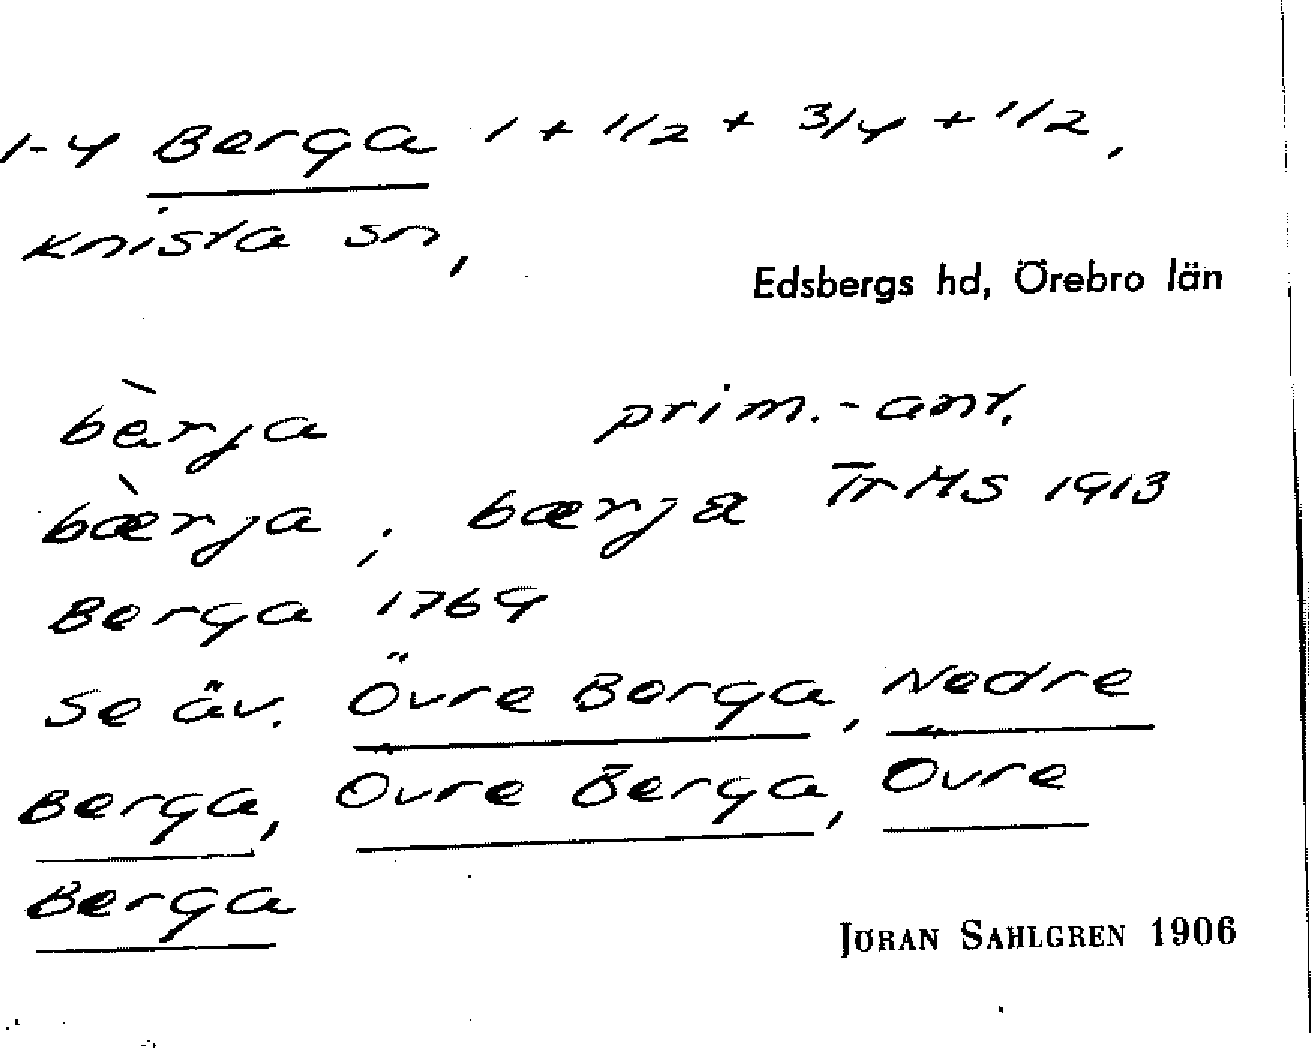 1-4 Berga 1 + 1/2 + 3/4 + 1/2,
Knista sn,
Edsbergs hd, Örebro län
bèrja prim.-ant.
bæ̀rja ; bærja TrMS 1913
Berga 1769
Se äv. Övre Berga, Nedre
Berga, Övre Berga, Övre
Berga
JÖRAN SAHLGREN 1906